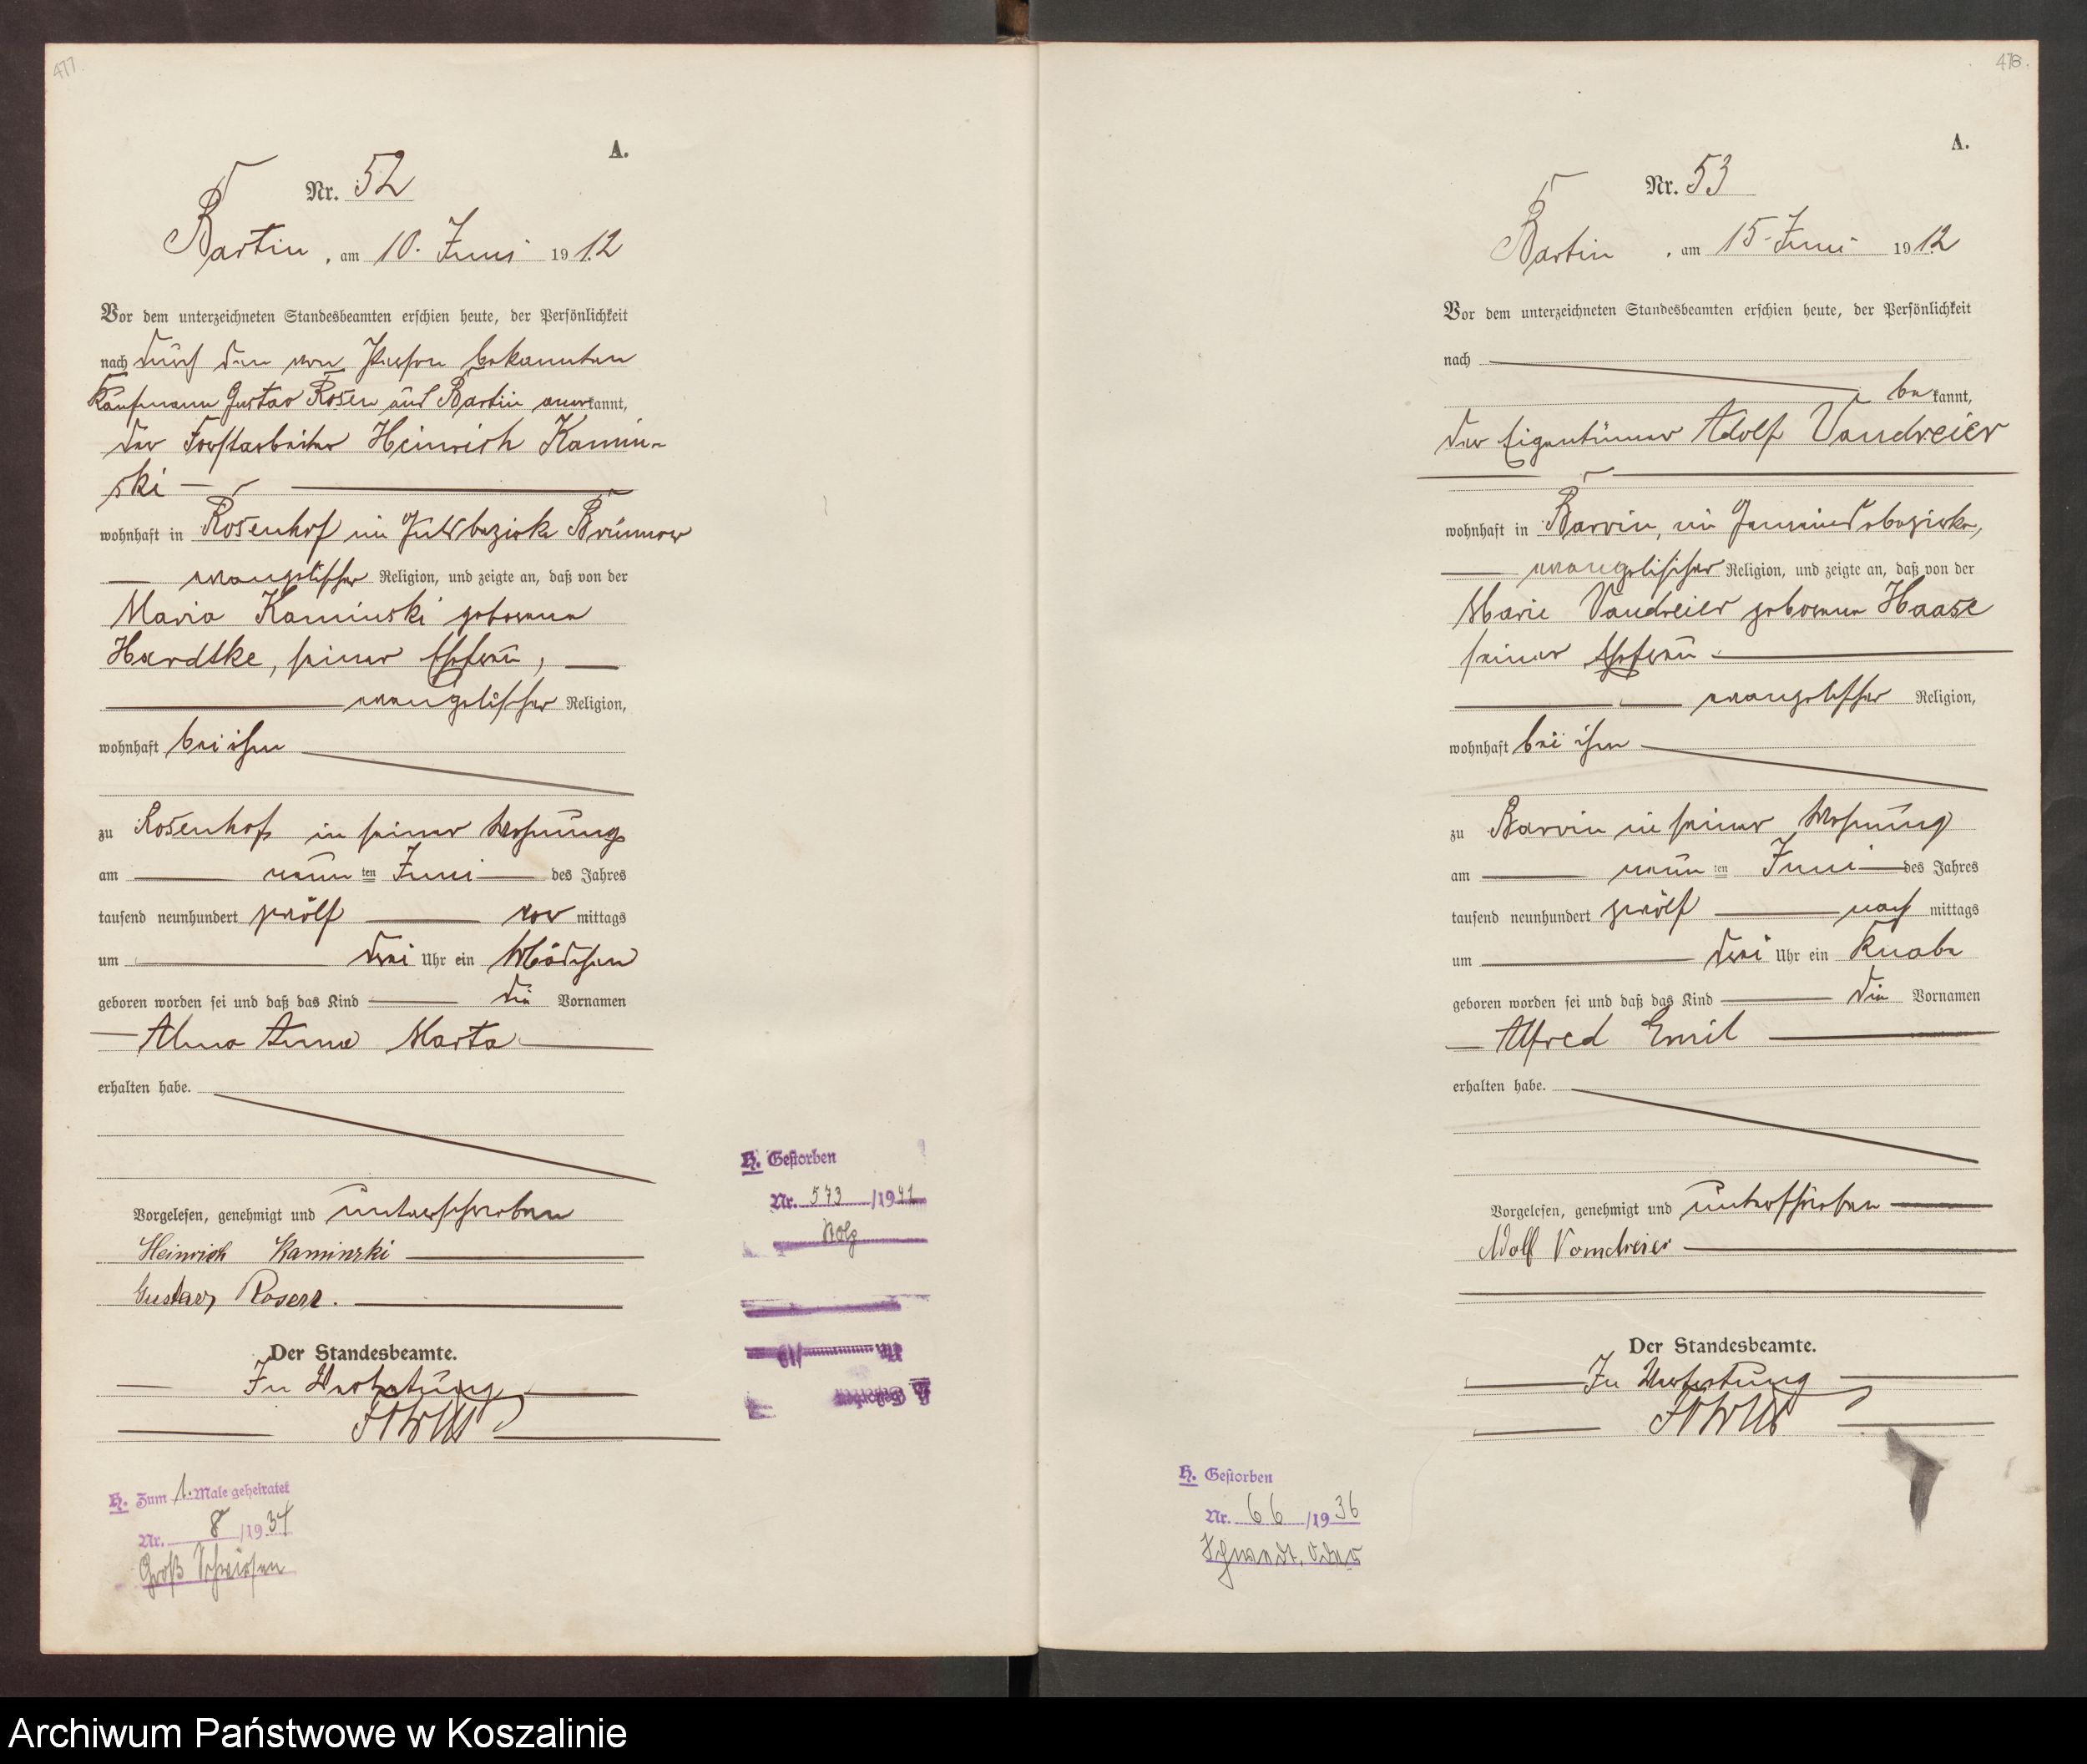 477.
A.
Nr. 52
Bartin, am 10. Juni 1912
Vor dem unterzeichneten Standesbeamten erschien heute, der Persönlichkeit
nach durch den von Person bekannten
Kaufmann Gustav Rosen aus Bartin anerkannt,
der Forstarbeiter Heinrich Kamin-
ski
wohnhaft in Rosenhof im Gutsbezirke Brünnow
evangelischer Religion, und zeigte an, daß von der
Maria Kaminski geborenen
Hardtke, seiner Ehefrau,
evangelischer Religion,
wohnhaft bei ihm
zu Rosenhof in seiner Wohnung
am neun ten Juni des Jahres
tausend neunhundert zwölf vor mittags
um drei Uhr ein Mädchen
geboren worden sei und daß das Kind die Vornamen
Alma Anna Marta
erhalten habe.
Vorgelesen, genehmigt und unterschrieben
Heinrich Kaminski
Gustav Rosen.
Der Standesbeamte.
In Vertretung
H. Zum 1. Male geheiratet
Nr. 8 /1934
Groß Schwirsen
H. Gestorben
Nr. 573 /1941
H. Gestorben
Nr. /19
478.
A.
Nr. 53
Bartin, am 15. Juni 1912
Vor dem unterzeichneten Standesbeamten erschien heute, der Persönlichkeit
nach
bekannt,
der Eigentümer Adolf Vandreier
wohnhaft in Barvin, im Gemeindebezirke,
evangelischer Religion, und zeigte an, daß von der
Marie Vandreier geborenen Haase
seiner Ehefrau
evangelischer Religion,
wohnhaft bei ihm
zu Barvin in seiner Wohnung
am neun ten Juni des Jahres
tausend neunhundert zwölf nach mittags
um drei Uhr ein Knabe
geboren worden sei und daß das Kind die Vornamen
Alfred Emil
erhalten habe.
Vorgelesen, genehmigt und unterschrieben
Adolf Vandreier
Der Standesbeamte.
In Vertretung
H. Gestorben
Nr. 66 /1936
Schwedt, Oder
Archiwum Państwowe w Koszalinie